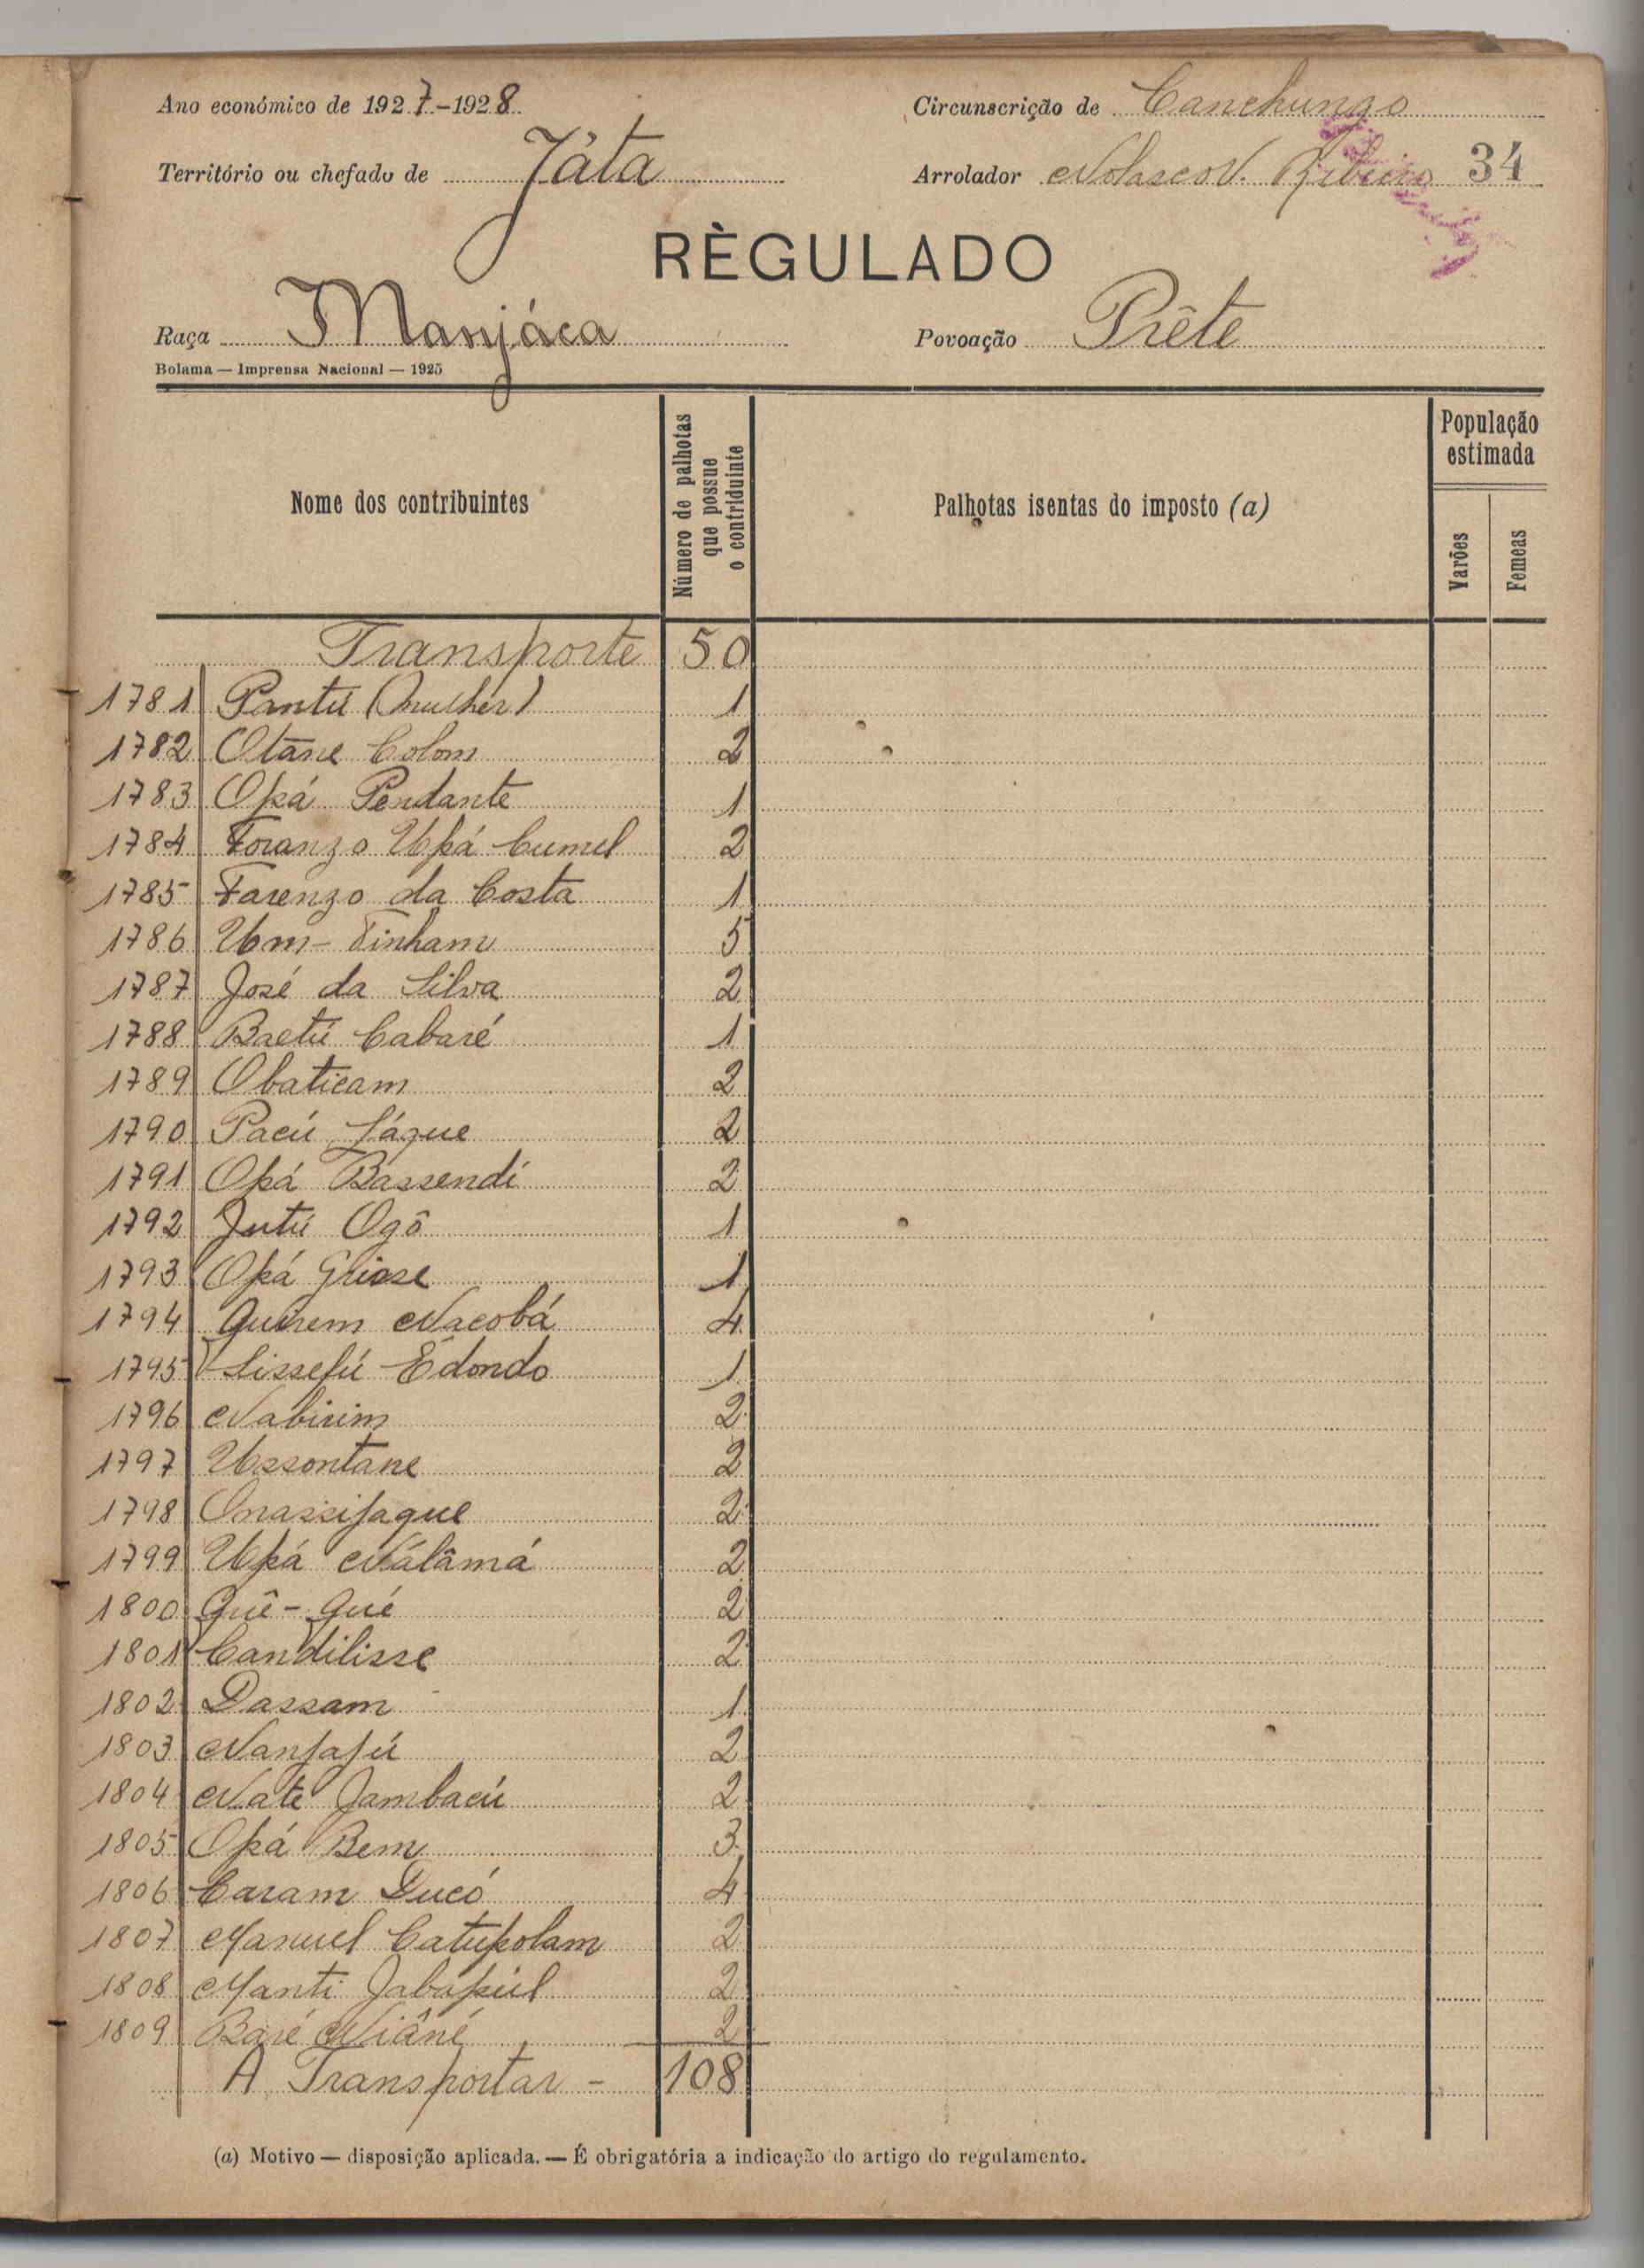 Ano económico de 1927-1928
Circunscrição de Canchungo
Território ou chefado de Játa
Arrolador Nolasco N. Ribeiro 34
RÈGULADO
Raça Manjáca
Povoação Prête
Bolama — Imprensa Nacional — 1925
Nome dos contribuintes
Número de palhotas
que possue
o contriduinte
Palhotas isentas do imposto (a)
População
estimada
Varões
Femeas
Transporte 50
1781 Pantú (mulher) 1
1782 Otane Colom 2
1783 Opá Pendante 1
1784 Foranzo Upá Cumel 2
1785 Farenzo da Costa 1
1786 Um-Tinham 5
1787 José da Silva 2
1788 Baetú Cabaré 1
1789 Obaticam 2
1790 Pacú Jáque 2
1791 Opá Bassendi 2
1792 Jutú Ogô 1
1793 Opá Griose 1
1794 Quirem Nacobá 4
1795 Lissefú Edondo 1
1796 Nabirim 2
1797 Ussontane 2
1798 Onassifaque 2
1799 Upá Nálâmá 2
1800 Quê-Qué 2
1801 Candilisse 2
1802 Dassam 1
1803 Nanfafú 2
1804 Nate Jambacú 2
1805 Opá Bem 3
1806 Caram Ducó 4
1807 Manuel Catupolam 2
1808 Manti Jabupiel 2
1809 Baré Niâné 2
A Transportar - 108
(a) Motivo — disposição aplicada. — É obrigatória a indicação do artigo do regulamento.